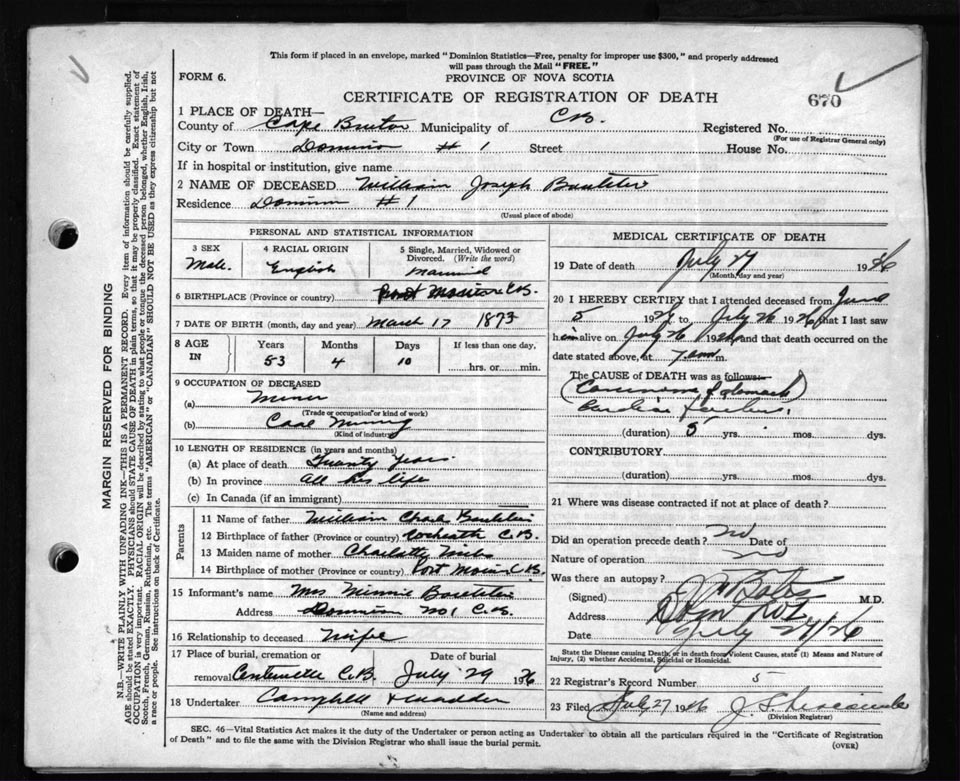 This form if placed in an envelope, marked "Dominion Statistics—Free, penalty for improper use $300," and properly addressed
will pass through the Mail "FREE."
FORM 6.
PROVINCE OF NOVA SCOTIA
CERTIFICATE OF REGISTRATION OF DEATH
670
1 PLACE OF DEATH—
County of Cape Breton Municipality of C.B. Registered No.
(For use of Registrar General only)
City or Town Dominion # 1 Street House No.
If in hospital or institution, give name
2 NAME OF DECEASED William Joseph
Residence Dominion # 1
(Usual place of abode)
PERSONAL AND STATISTICAL INFORMATION
3 SEX
Male.
4 RACIAL ORIGIN
English
5 Single, Married, Widowed or
Divorced. (Write the word)
Married
6 BIRTHPLACE (Province or country) Port Morien C.B.
7 DATE OF BIRTH (month, day and year) March 17 1873
8 AGE IN
Years Months Days If less than one day,
53 4 10 hrs. or min.
9 OCCUPATION OF DECEASED
(a) Miner
(Trade or occupation or kind of work)
(b) Coal Mining
(Kind of industry)
10 LENGTH OF RESIDENCE (in years and months)
(a) At place of death Twenty Years.
(b) In province all his life
(c) In Canada (if an immigrant)
Parents
11 Name of father William Charles
12 Birthplace of father (Province or country) C.B.
13 Maiden name of mother Charlotte
14 Birthplace of mother (Province or country) Port Morien C.B.
15 Informant's name Mrs Minnie
Address Dominion No 1 C.B.
16 Relationship to deceased Wife
17 Place of burial, cremation or Date of burial
removal Centerville C.B. July 29 1926
18 Undertaker Campbell &
(Name and address)
MEDICAL CERTIFICATE OF DEATH
19 Date of death July 27 1926
(Month, day and year)
20 I HEREBY CERTIFY that I attended deceased from June
5 1926 to July 26 1926 that I last saw
him alive on July 26 1926 and that death occurred on the
date stated above, at 7 am m.
The CAUSE of DEATH was as follows:
(Carcinoma of stomach)
Cardiac failure.
(duration) 5 yrs. mos. dys.
CONTRIBUTORY
(duration) yrs. mos. dys.
21 Where was disease contracted if not at place of death?
Did an operation precede death? No Date of
Nature of operation
Was there an autopsy? No
(Signed) M.D.
Address Dom No 1
Date July 27/26
State the Disease causing Death, or in death from Violent Causes, state (1) Means and Nature of
Injury, (2) whether Accidental, Suicidal or Homicidal.
22 Registrar's Record Number 5
23 Filed July 27 1926
(Division Registrar)
SEC. 46—Vital Statistics Act makes it the duty of the Undertaker or person acting as Undertaker to obtain all the particulars required in the "Certificate of Registration
of Death" and to file the same with the Division Registrar who shall issue the burial permit.
(OVER)
MARGIN RESERVED FOR BINDING
N.B.—WRITE PLAINLY WITH UNFADING INK—THIS IS A PERMANENT RECORD. Every item of information should be carefully supplied.
AGE should be stated EXACTLY. PHYSICIANS should STATE CAUSE OF DEATH in plain terms, so that it may be properly classified. Exact statement of
OCCUPATION is very important. RACIAL ORIGIN will be described by stating to what people or tongue the deceased person belonged, whether English, Irish,
Scotch, French, German, Russian, Ruthenian, etc. The terms "AMERICAN" or "CANADIAN" SHOULD NOT BE USED as they express citizenship but not
a race or people. See instructions on back of Certificate.